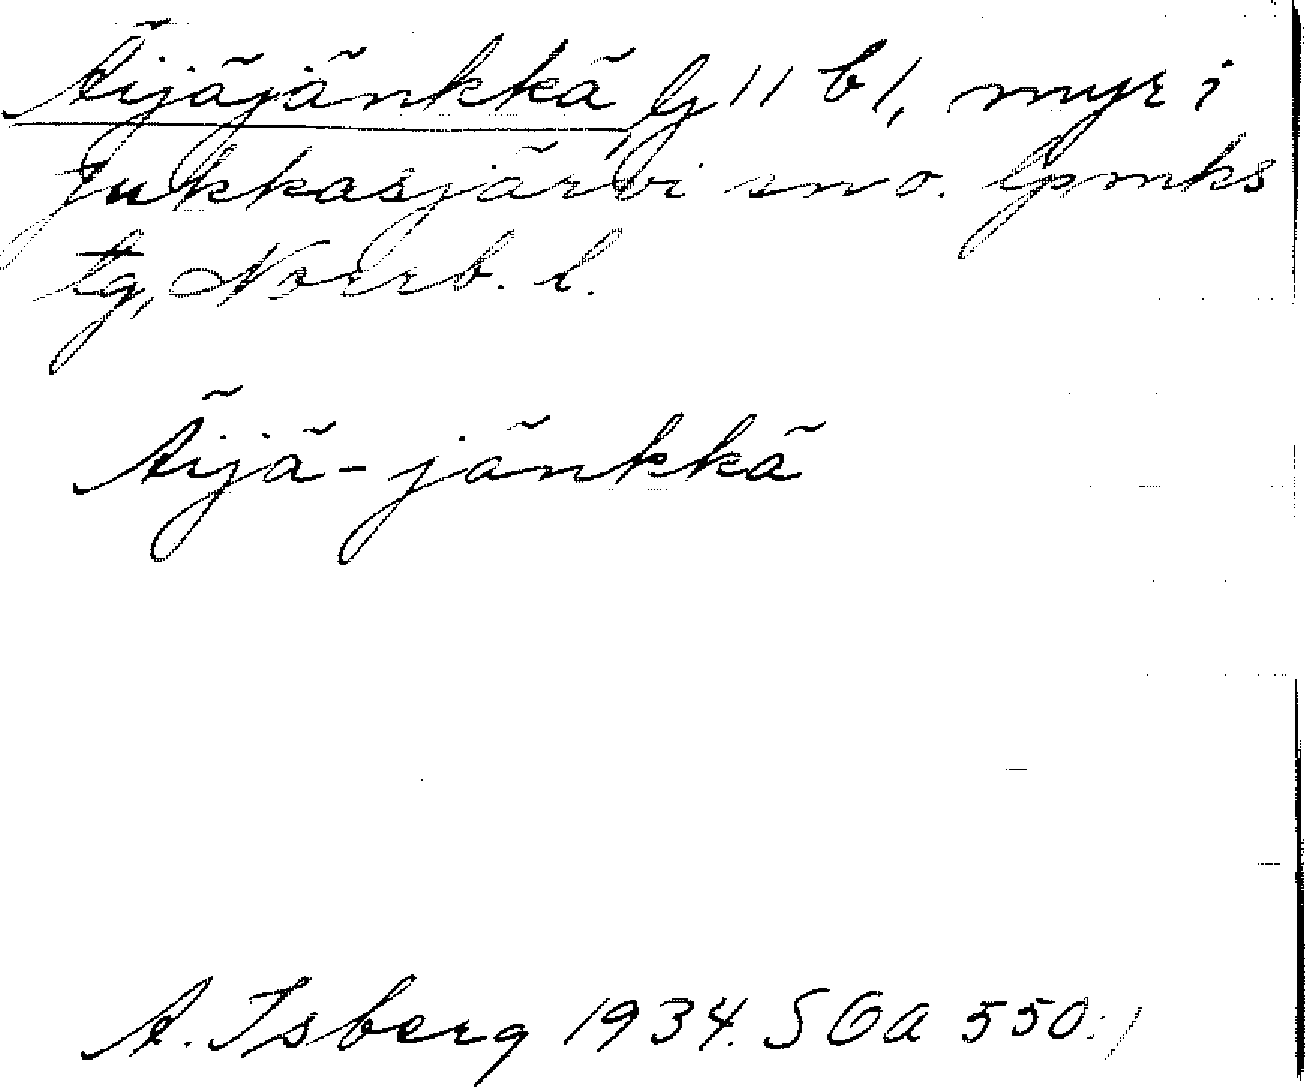 Äijäjänkkä, Gj 11 b 1, myr i
Jukkasjärvi sn o. lpmks
tg, Norrb. l.
Äijä-jänkkä
A. Isberg 1934. SOA 550:1